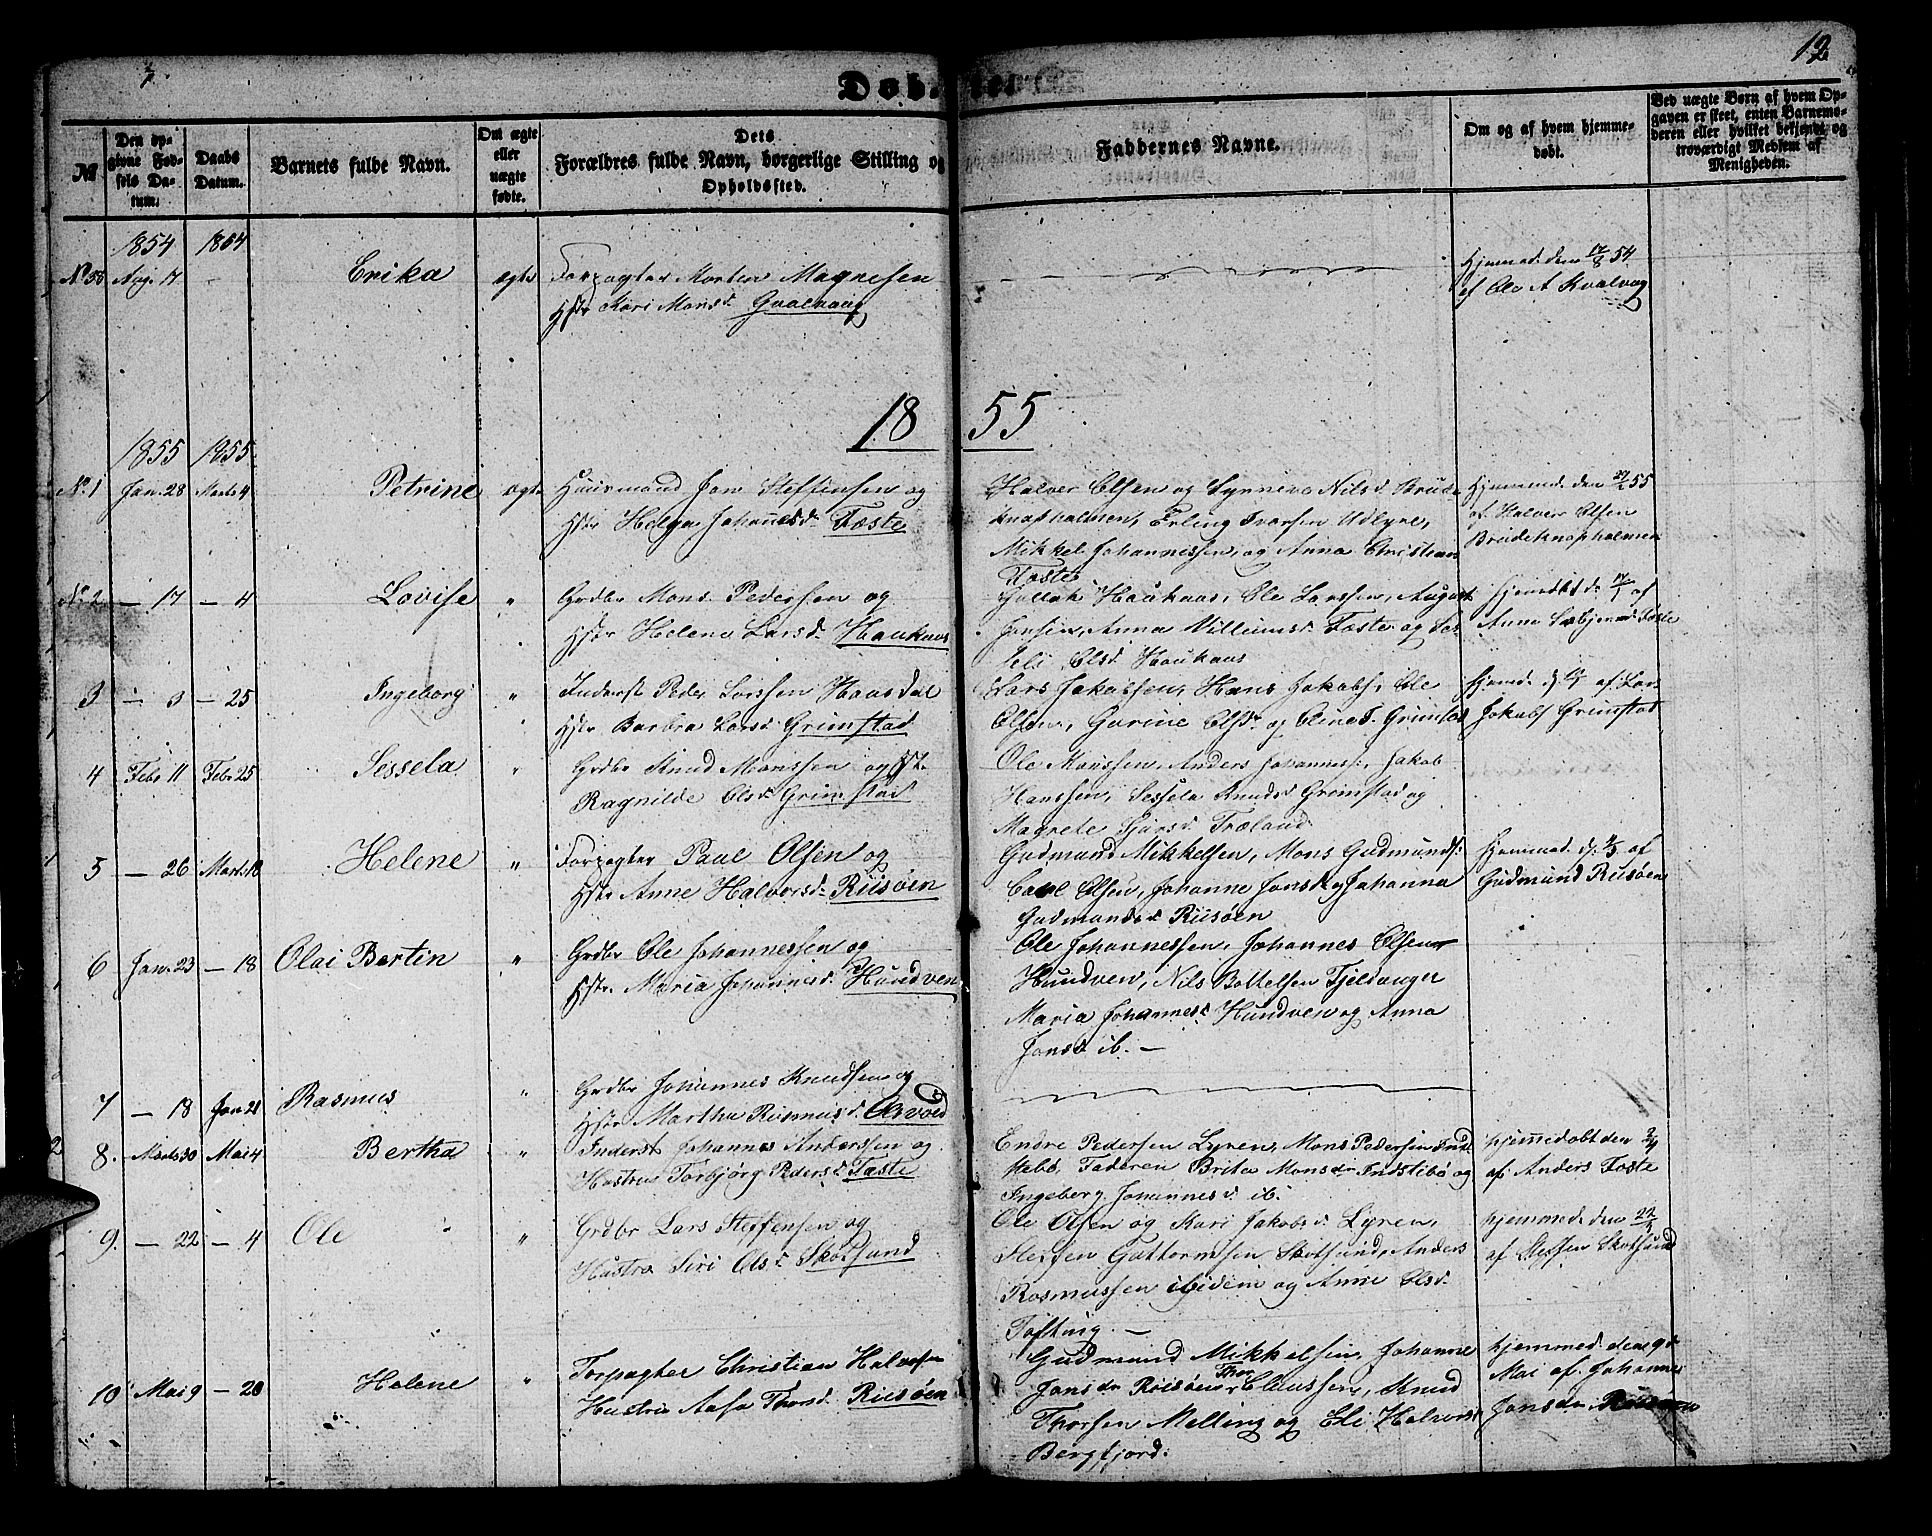 12
Døbte
№
Den opgivne Fødsels Datum.
Daabs Datum.
Barnets fulde Navn.
Om ægte eller uægte fødte.
Dets
Forældres fulde Navn, borgerlige Stilling og
Opholdssted.
Faddernes Navne.
Om og af hvem hjemmedøbt.
Ved uægte Børn af hvem Opgaven er skeet, enten Barnemoderen eller hvilket bekjendt og troværdigt Medlem af Menigheden.
1854 1854
No 58 Aug. 17 - Erika ægte Forpagter Morten Magnesen
Hstr Kari Monsd. Qualvaag
Hjemmed. den 17/8 54
af Ole A Kvalvaag
1855
1855 1855
No. 1 Jan. 28 Marts 4 Petrine ægte Huusmand Jon Steffensen og
Hstr Helga Johannesd. Foste
Halvor Olsen og Synneva Nilsd. Brude-
knapholmen, Erling Ivarsen Udlyre,
Mikkel Johannessen og Anna Christians
Foste
Hjemmed. den 55
af Halvor Olsen
Brudeknapholmen
No. 2 - 17 - 4 Lovise " Grdbr Mons Pedersen og
Hstr Helene Larsd. Haukaas
Haukaas, Ole Larssen, August
Jonsen, Anna Villumsd. Foste og
Olsd. Haukaas
Hjemdbt d. 17/1 af
Anna Foste
3 - 9 - 25 Ingeborg " Inderst Peder Larssen Haasdal
Hstr Barbra Larsd. Grimstad
Lars Jakobsen, Hans Jakobs, Ole
Olsen, Gurine Olsdr og Oline Grimstad
Hjemmed. af Lars
Jakobs Grimstad
4 Febr 11 Febr 25 Sessela " Grdbr Knud Monssen og Hstr
Ragnilde Olsd. Grimstad
Ole Monssen, Anders Johanness., Jakob
Hanssen, Sessela Knudsd Grimstad og
Magrete Sjursd. Træland
5 - 26 Marts 18 Helene " Forpagter Paul Olsen og
Hstr Anne Halvorsd. Riisøen
Gudmund Mikkelsen, Mons Gudmunds:
Olsen, Johanne Jonsd og Johanna
Gudmundsd Riisøen
Hjemmed. d. af
Gudmund Riisøen
6 Jan. 23 - 18 Olai Bertin " Grdbr Ole Johannessen og
Hstr. Maria Johannesd. Hundven
Ole Johannessen, Johannes Olsen
Hundven, Nils Bottelsen Fjeldanger
Maria Johannesd. Hundven og Anna
Jonsd ib. -
7 - 18 Jan 21 Rasmus " Grdbr Johannes Knudsen og
Hstr Martha Rasmusd.
8. Marts 30 Mai 4 Bertha " Inderst Johannes Anderssen og
Hustru Torbjørg Pedersd. Foste
Endre Pedersen Lyren, Mons Pedersen Ind-
stebø, Faderen Brita Monsdr Indstebø og
Ingeborg Johannesd. ib.
hjemmedøbt den 2/4
af Anders Foste
9. - 22 - 4 Ole " Grdbr Lars Steffensen og
Hustru Siri Olsd. Skotsund
Ole Olsen og Kari Jakobsd. Lyren,
Steffen Guttormsen Skotsund, Anders
Rasmussen ibidem og Anne Olsd.
Tofting. -
hjemmed. den 22/3
af Steffen Skotsund
10 Mai 9 - 20 Helene " Forpagter Christian Halvorsen
Hustru Aasa Thorsd. Riisøen
Gudmund Mikkelsen, Johanne
Jonsdr Riisøen, Thor Claussen, Knud
Thorsen Melling og Ole Halvors
Bergfjord.
hjemmed. den 9de
Mai af Johanne
Jonsdr Riisøen